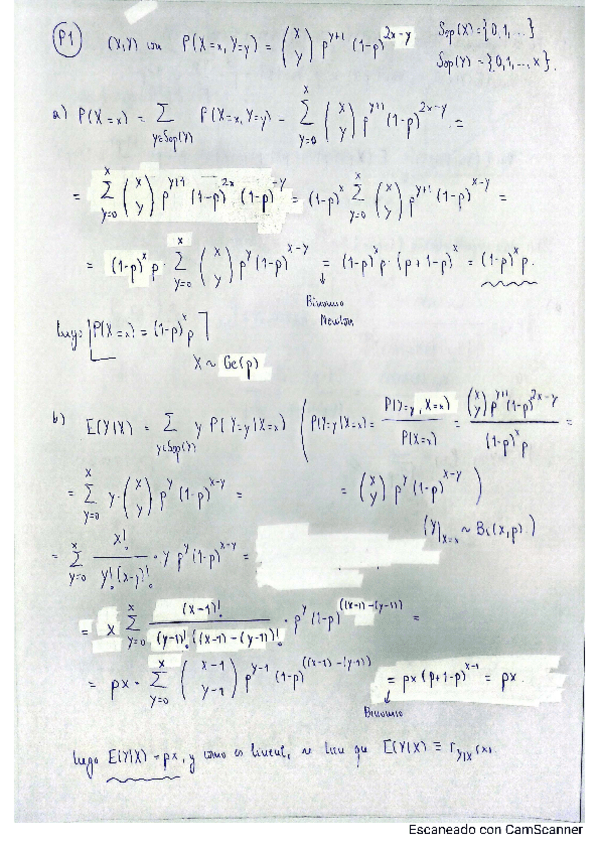 P1 (X,Y) con P(X=x, Y=y) = \binom{x}{y} p^{y+1} (1-p)^{2x-y} Sop(X)={0,1,...}
Sop(Y)={0,1,...,x}.
a) P(X=x) = \sum_{y∈Sop(Y)} P(X=x, Y=y) = \sum_{y=0}^{x} \binom{x}{y} p^{y+1} (1-p)^{2x-y} =
= \sum_{y=0}^{x} \binom{x}{y} p^{y+1} (1-p)^{2x} (1-p)^{-y} = (1-p)^x \sum_{y=0}^{x} \binom{x}{y} p^{y+1} (1-p)^{x-y} =
= (1-p)^x p · \sum_{y=0}^{x} \binom{x}{y} p^y (1-p)^{x-y} = (1-p)^x p · (p+1-p)^x = (1-p)^x p.
↓
Binomio
Newton
luego: P(X=x) = (1-p)^x p
X ~ Ge(p)
b) E(Y|X) = \sum_{y∈Sop(Y)} y P(Y=y|X=x) ( P(Y=y|X=x) = \frac{P(Y=y, X=x)}{P(X=x)} = \frac{\binom{x}{y} p^{y+1} (1-p)^{2x-y}}{(1-p)^x p} =
= \sum_{y=0}^{x} y · \binom{x}{y} p^y (1-p)^{x-y} = = \binom{x}{y} p^y (1-p)^{x-y} )
(Y|_{X=x} ~ Bi(x,p))
= \sum_{y=0}^{x} \frac{x!}{y!(x-y)!} · y p^y (1-p)^{x-y} =
= x \sum_{y=0}^{x} \frac{(x-1)!}{(y-1)! ((x-1)-(y-1))!} · p^y (1-p)^{((x-1)-(y-1))} =
= px · \sum_{y=0}^{x} \binom{x-1}{y-1} p^{y-1} (1-p)^{((x-1)-(y-1))} = px (p+1-p)^{x-1} = px.
↓
Binomio
luego E(Y|X) = px, y como es lineal, se tiene que E(Y|X) ≡ r_{Y|X}(x).
Escaneado con CamScanner